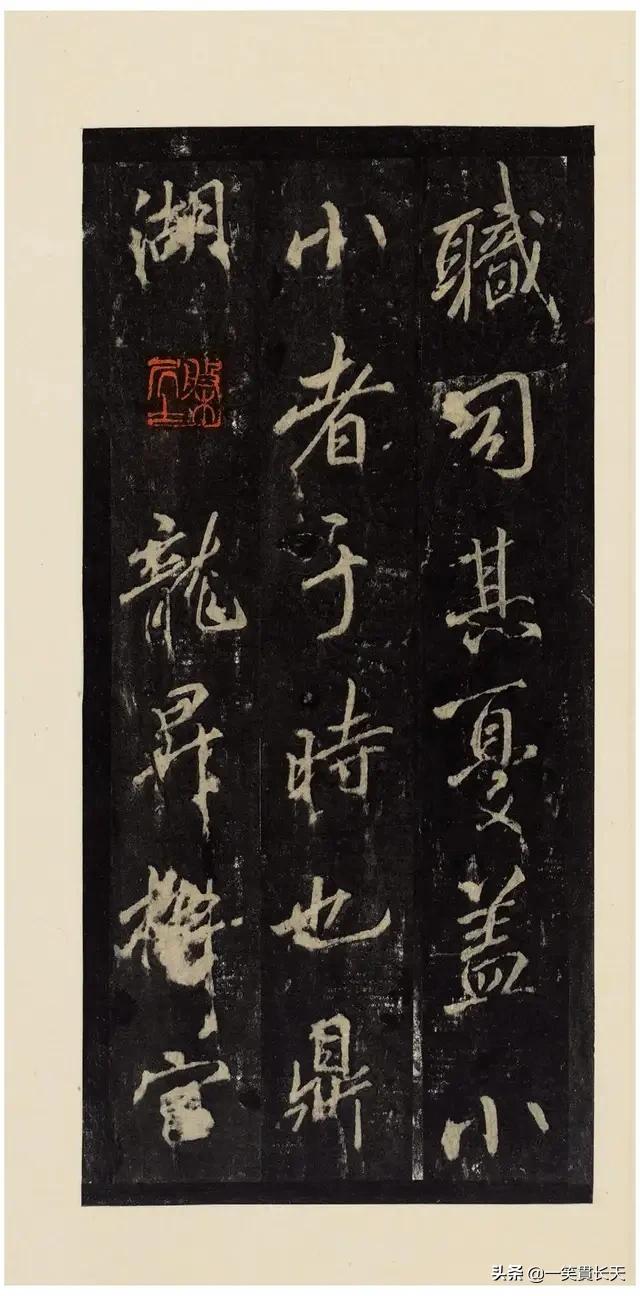 職司其憂蓋小
小者于時也鼎
湖龍昇官
头条 @一笑貫长天